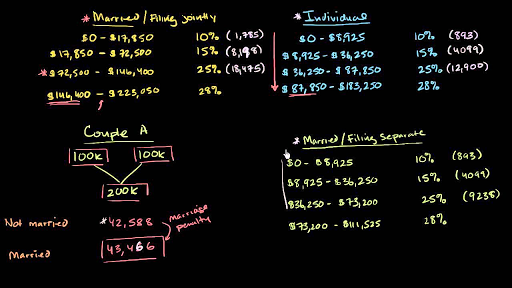 * Married/Filing jointly
$0 - $17,850 10% (1,785)
$17,850 - $72,500 15% (8,198)
* $72,500 - $146,400 25% (18,475)
$146,400 - $223,050 28%
* Individual
$0 - $8,925 10% (893)
$8,925 - $36,250 15% (4099)
$36,250 - $87,850 25% (12,900)
$87,850 - $183,250 28%
Couple A
100k 100k
200k
Not married *42,588
Married 43,466
marriage
penalty
* Married/Filing Separate
$0 - $8,925 10% (893)
$8,925 - $36,250 15% (4099)
$36,250 - $73,200 25% (9238)
$73,200 - $111,525 28%